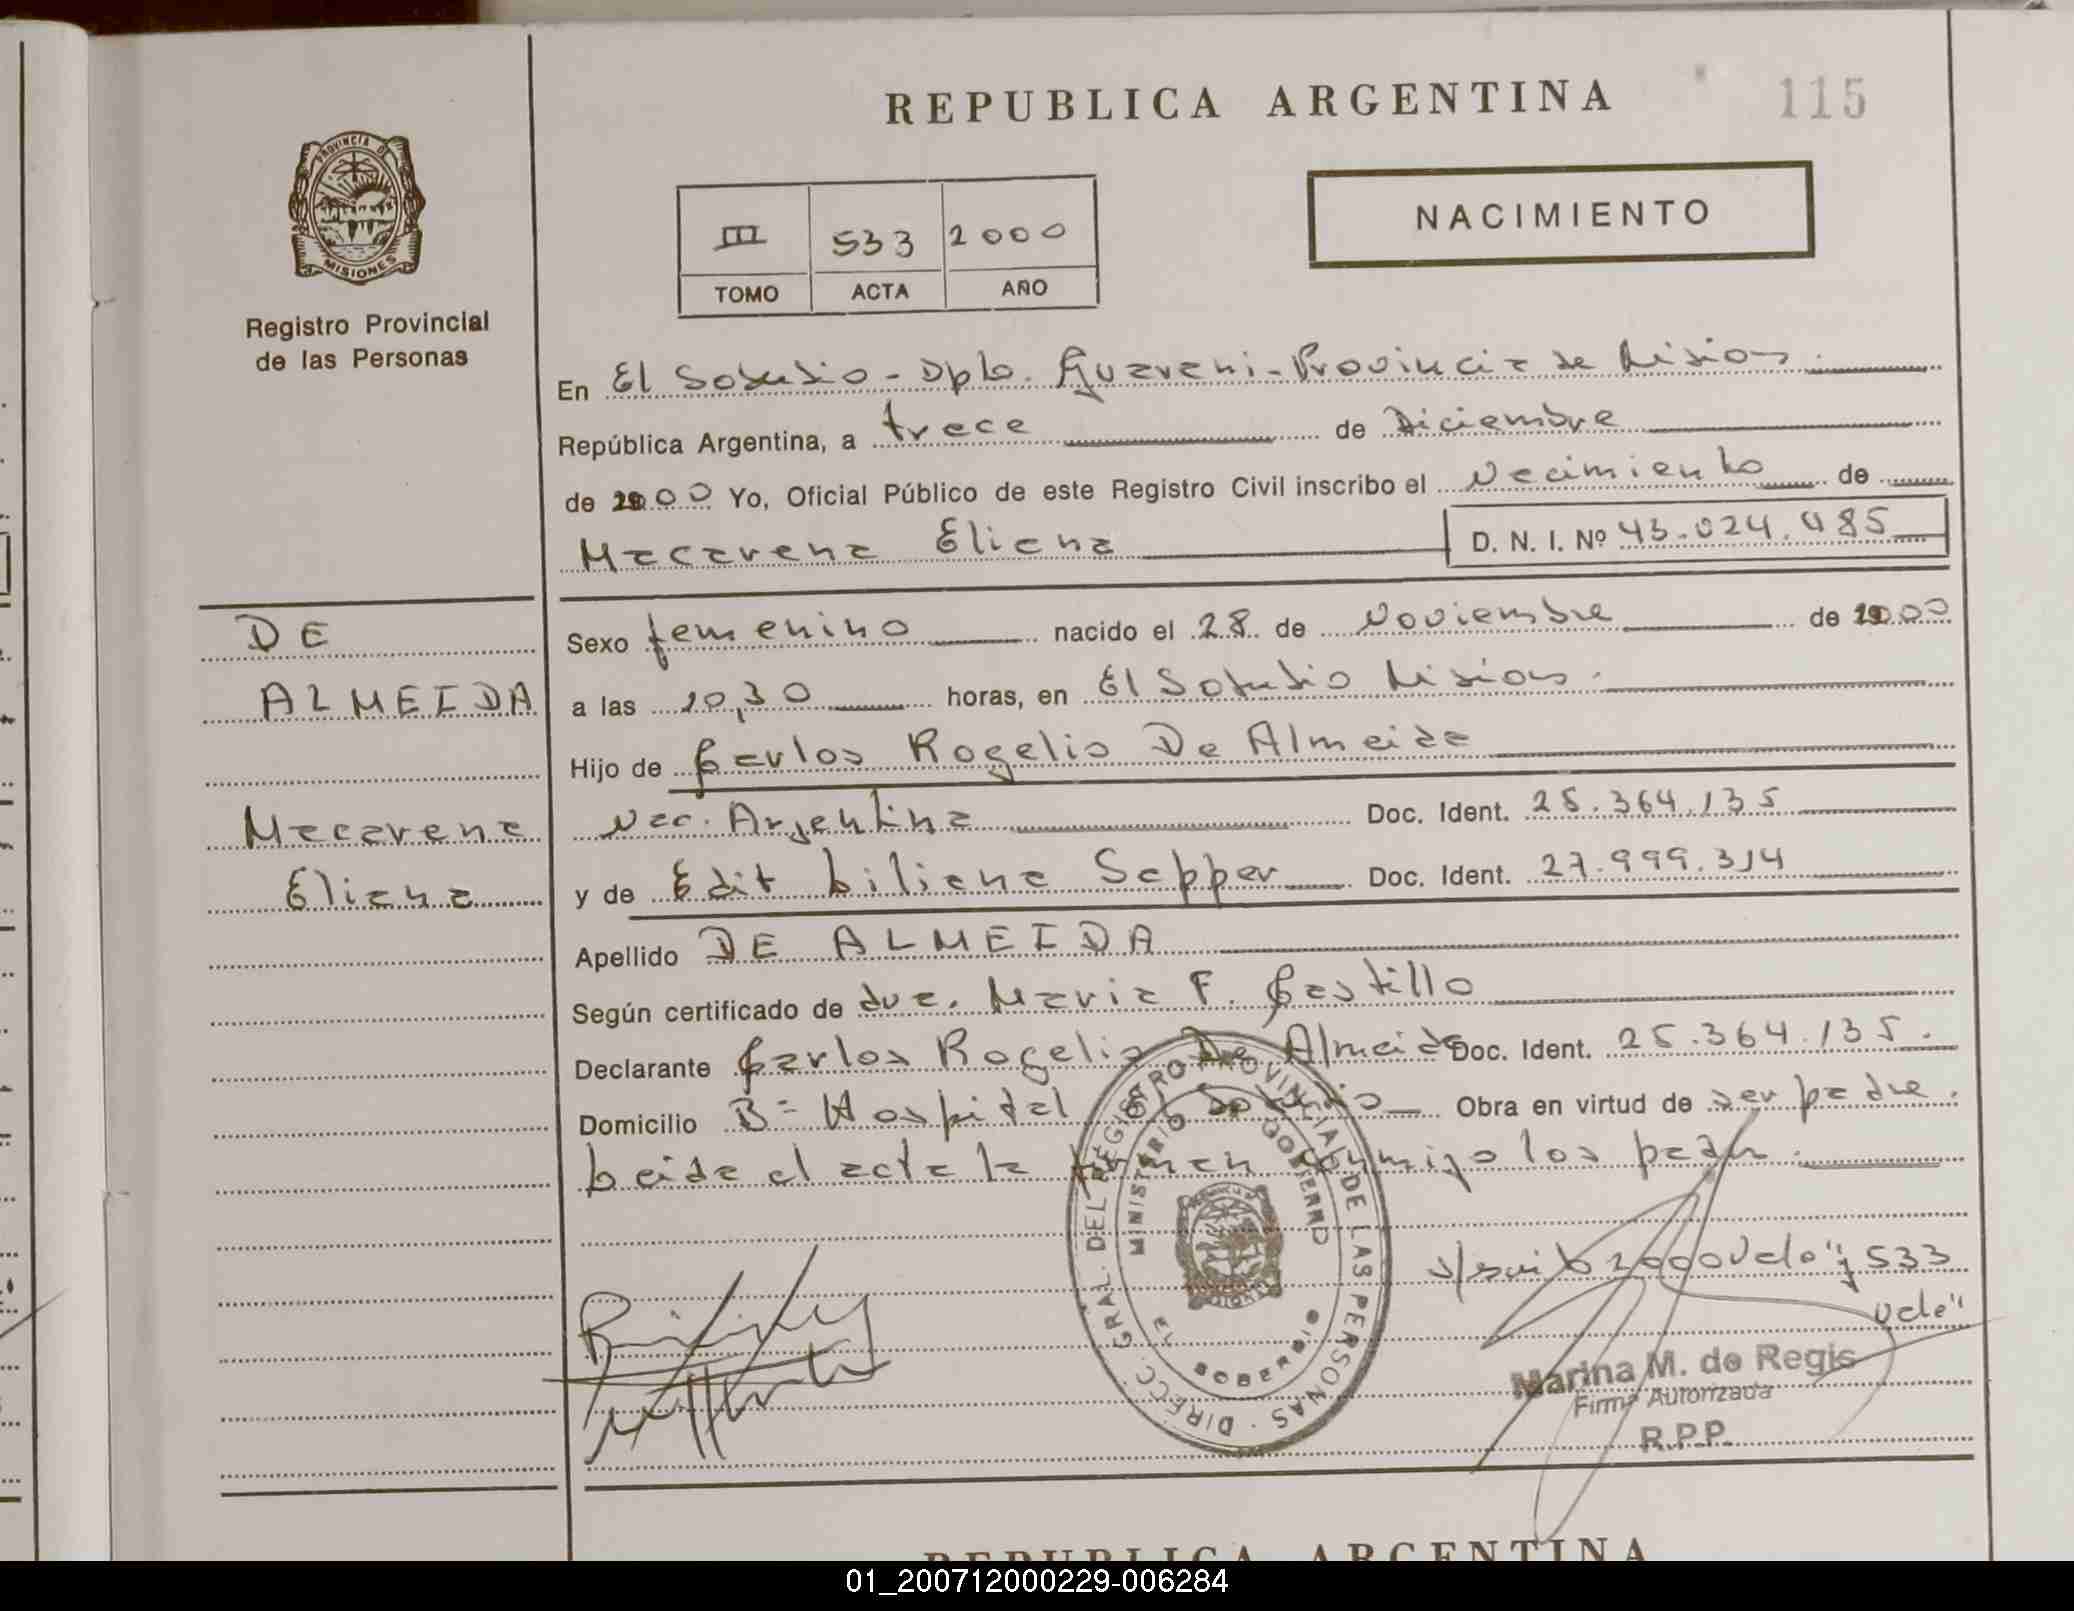 REPUBLICA ARGENTINA
115
PROVINCIA DE MISIONES
Registro Provincial
de las Personas
NACIMIENTO
III 533 2000
TOMO ACTA AÑO
En El Soberbio - Dpto. Guarani - Provincia de Misiones
República Argentina, a trece de Diciembre
de 2000 Yo, Oficial Público de este Registro Civil inscribo el Nacimiento de
Macarena Eliana D. N. I. Nº 43.024.485
DE
ALMEIDA
Macarena
Eliana
Sexo femenino nacido el 28 de Noviembre de 2000
a las 10,30 horas, en El Soberbio Misiones.
Hijo de Carlos Rogelio De Almeida
Nac. Argentina Doc. Ident. 25.364.135
y de Edit Liliana Sapper Doc. Ident. 27.999.314
Apellido DE ALMEIDA
Según certificado de dra. Maria F. Castillo
Declarante Carlos Rogelio De Almeida Doc. Ident. 25.364.135.
Domicilio Bº Hospital El Soberbio Obra en virtud de ser padre.
Leida el acta la firman conmigo los padres.
2000 Vale" y 533
Vale"
DIRECC. GRAL. DEL REGISTRO PROVINCIAL DE LAS PERSONAS
MINISTERIO DE GOBIERNO
SOBERBIO
MISIONES
Marina M. de Regis
Firma Autorizada
R.P.P.
REPUBLICA ARGENTINA
01_200712000229-006284